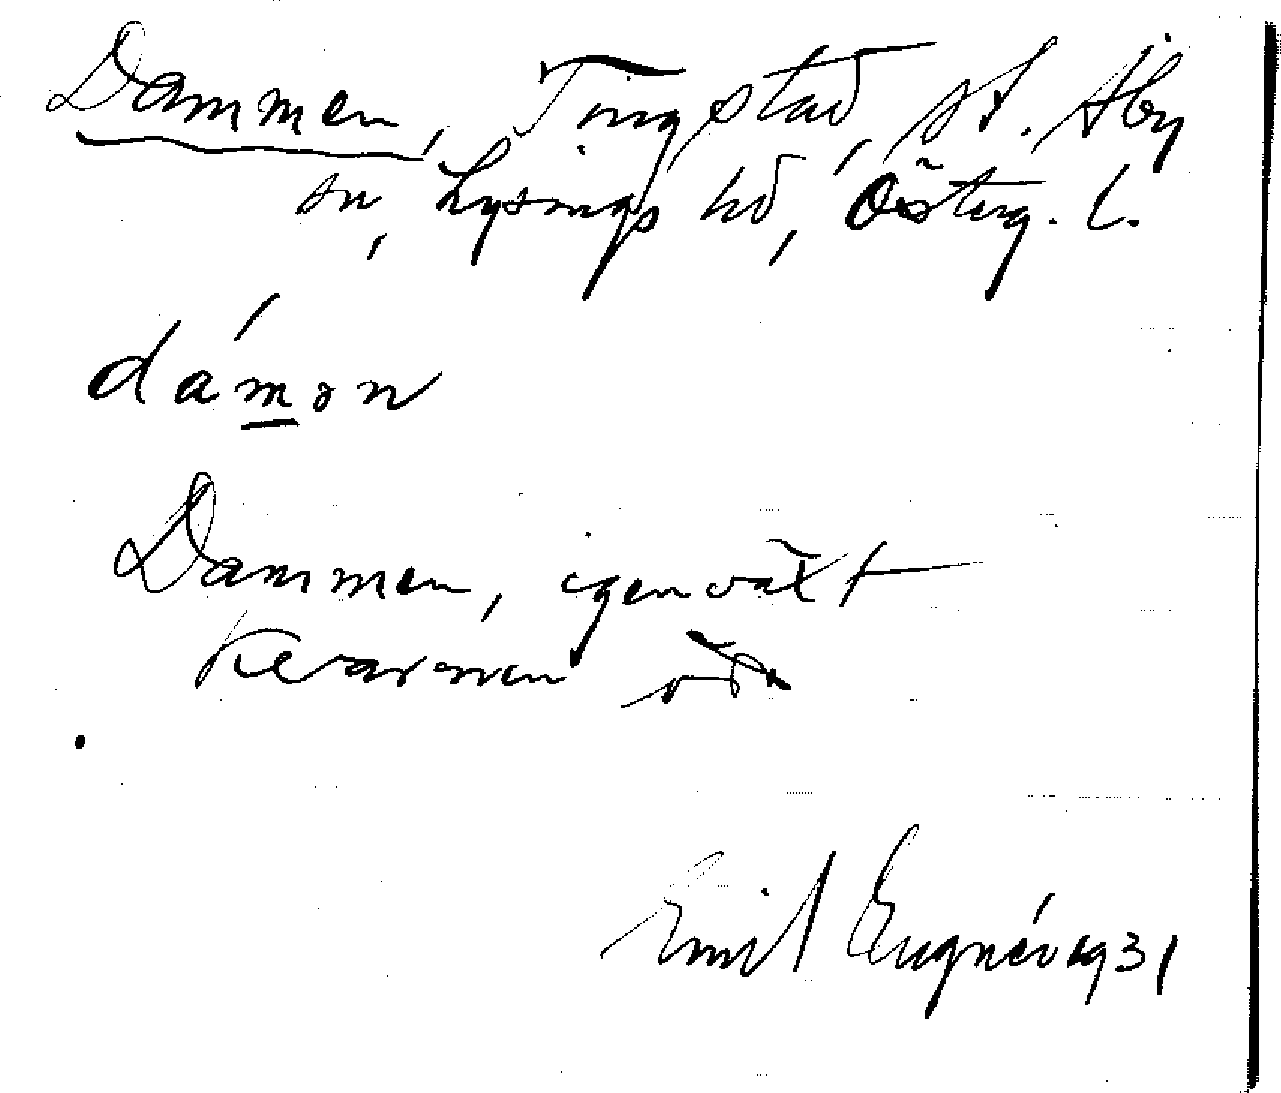 Dammen, Tingstad, St. Åby
sn, Lysings hd, Österg. l.
dámən
Dammen, igenväxt
Kvarnen
Emil 1931